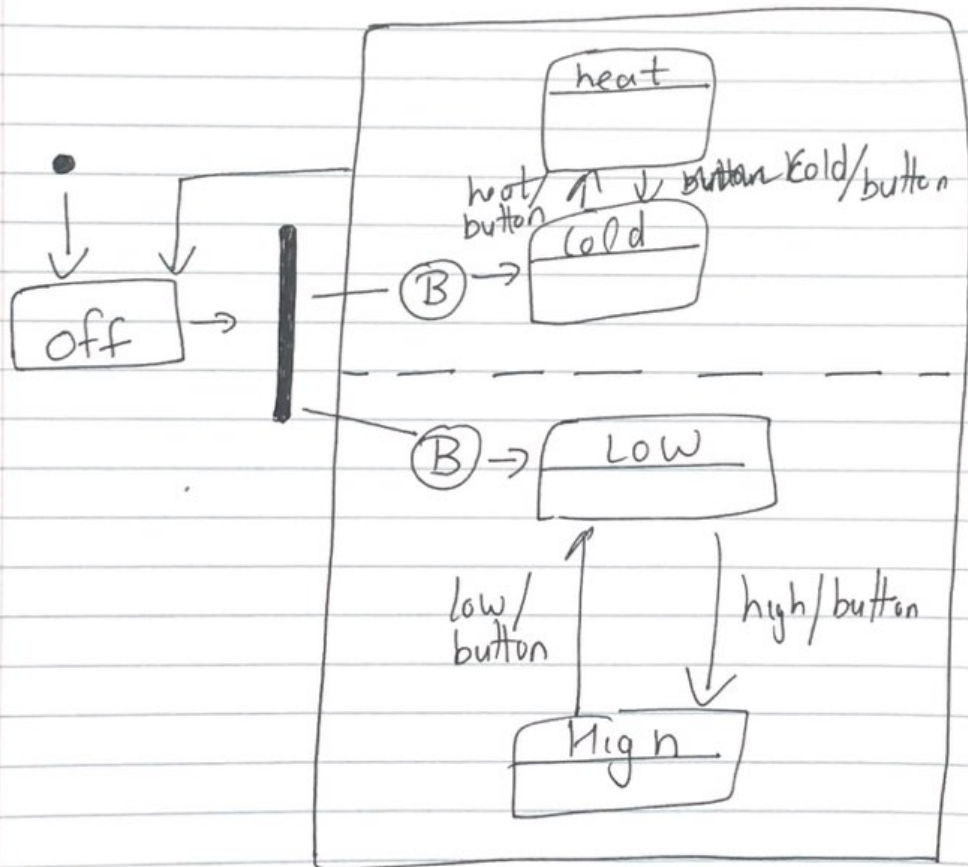 heat
heat/
button
cold/button
Cold
B
off
B
Low
low/
button
high/button
High